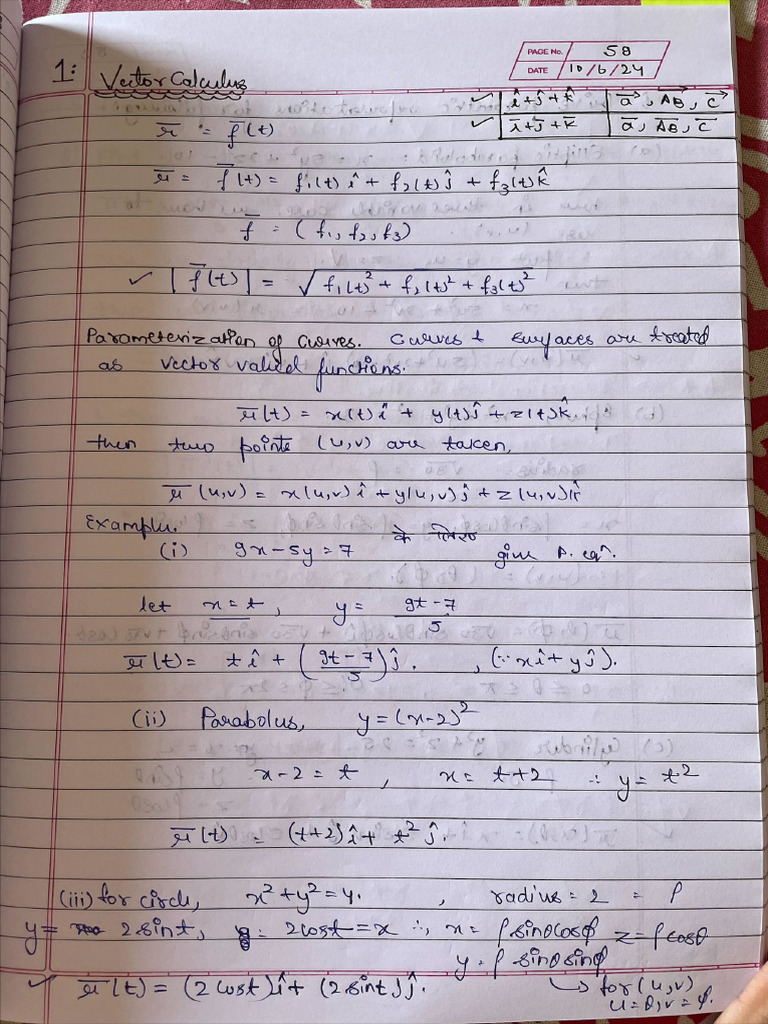 PAGE No. 58
DATE 10/6/24
1: Vector Calculus
✓ î+ĵ+k̂ | a⃗, A⃗B⃗, c⃗
✓ i̅+j̅+k̅ | a̅, A̅B̅, c̅
r̅ = f(t)
r̅ = f̅(t) = f₁(t) î + f₂(t) ĵ + f₃(t) k̂
f̅ = (f₁, f₂, f₃)
✓ |f̅(t)| = √(f₁(t)² + f₂(t)² + f₃(t)²)
Parameterization of Curves. Curves + surfaces are treated
as vector valied functions.
r̅(t) = x(t) î + y(t) ĵ + z(t) k̂
then two points (u,v) are taken,
r̅(u,v) = x(u,v) î + y(u,v) ĵ + z(u,v) k̂
Example.
(i) 9x-5y=7 के लिए give P. eqⁿ.
let x=t, y = (9t-7)/5
r̅(t) = t î + ((9t-7)/5) ĵ. , (∵ xî + yĵ).
(ii) Parabolus, y=(x-2)²
x-2 = t, x = t+2 ∴ y = t²
r̅(t) = (t+2) î + t² ĵ.
(iii) for circle, x²+y²=4. , radius = 2 = ρ
y = 2 sint, 2cost = x ∴, x = ρ sinθcosφ z=ρcosθ
y = ρ sinθsinφ
✓ r̅(t) = (2cost) î + (2sint) ĵ. ↳ for (u,v)
u=θ, v=φ.